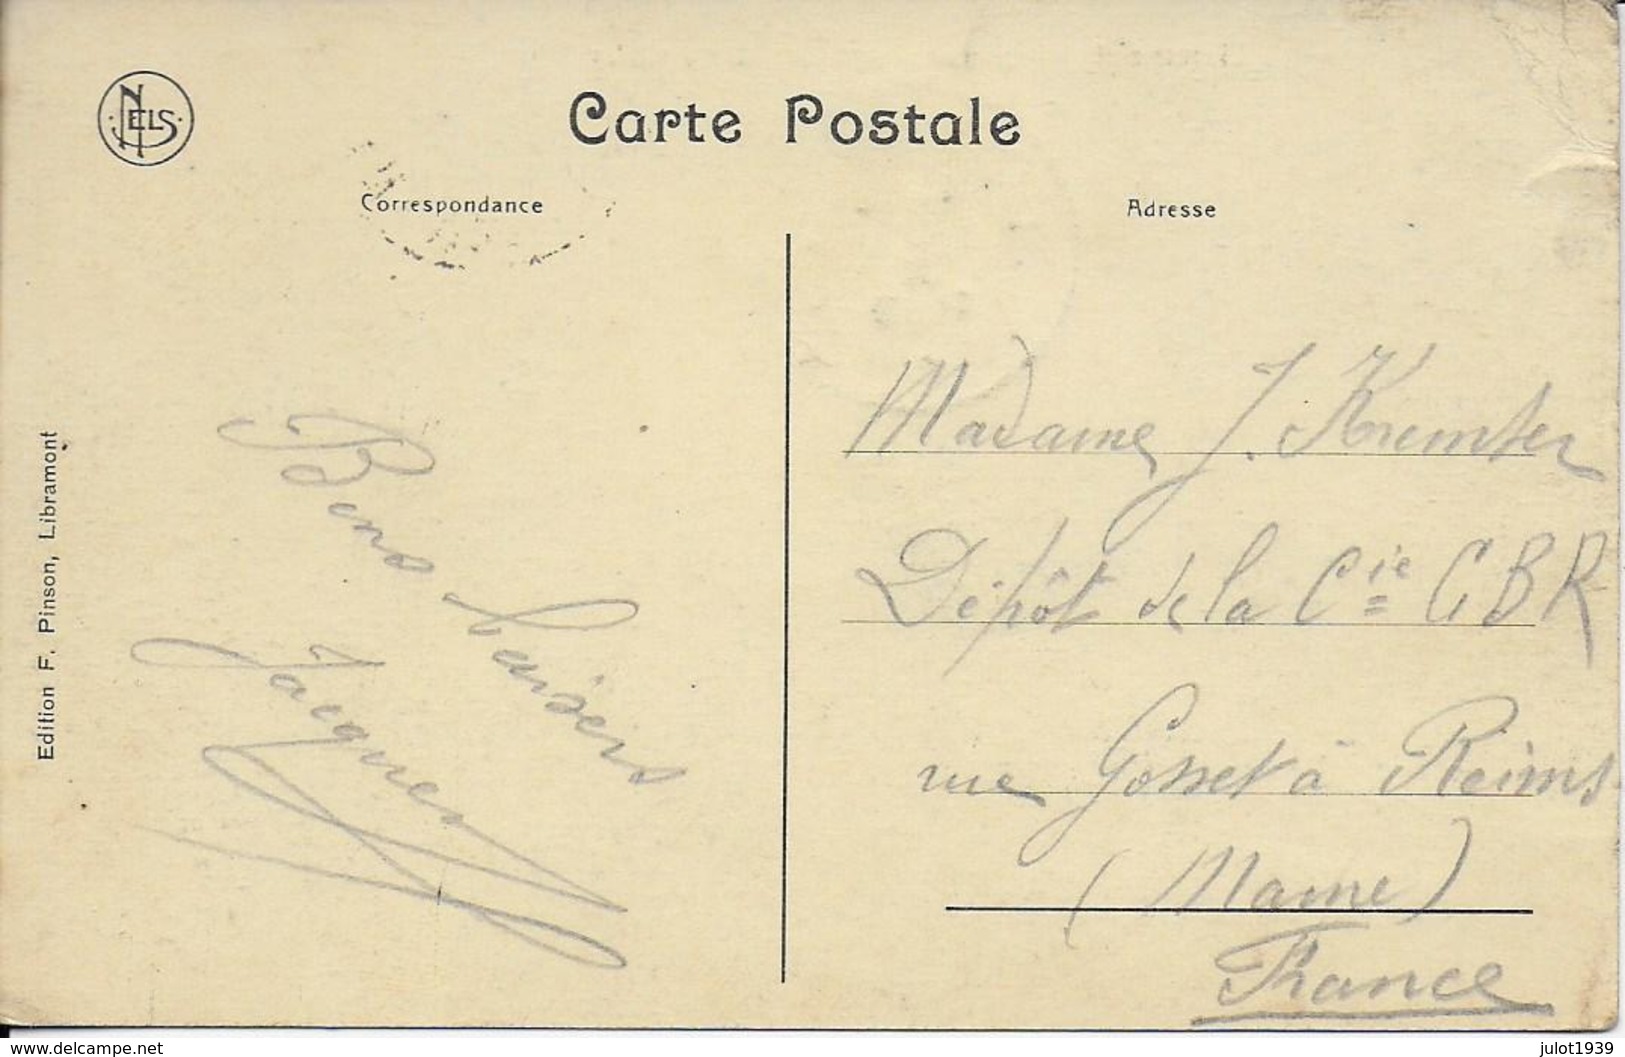 NELS
Carte Postale
Correspondance
Adresse
Edition F. Pinson, Libramont
Bons baisers
Jacques
Madame J. Kremter
Dépôt de la Cie CBR
rue Gosset à Reims
(Marne)
France
www.delcampe.net
julot1939